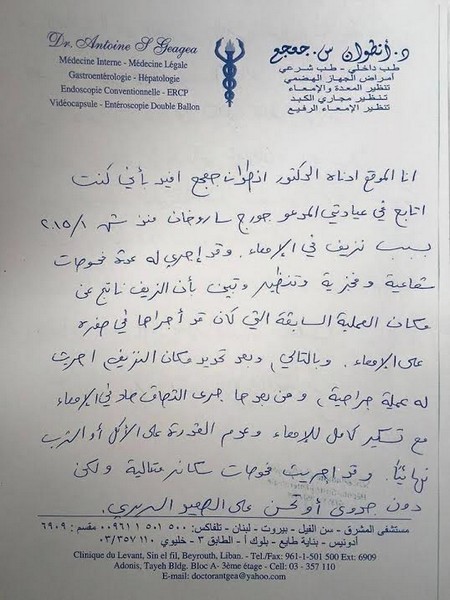 Dr. Antoine S Geagea
Médecine Interne - Médecine Légale
Gastroentérologie - Hépatologie
Endoscopie Conventionnelle - ERCP
Vidéocapsule - Entéroscopie Double Ballon
د. أنطوان س. جعجع
طب داخلي - طب شرعي
أمراض الجهاز الهضمي
تنظير المعدة والإمعاء
تنظير مجاري الكبد
تنظير الإمعاء الرفيع
انا الموقع ادناه الدكتور انطوان جعجع افيد بأني كنت
اتابع في عيادتي المدعو جورج ساروخان منذ شهر ٢٠١٥/١
بسبب نزيف في الإمعاء. وقد إجري له عدة فحوصات
شعاعية ومخبرية وتنظير وتبين بأن النزيف ناتج عن
مكان العملية السابقة التي كان قد أجراها في صغره
على الإمعاء. وبالتالي وبعد تحديد مكان النزيف اجريت
له عملية جراحية، ومن بعدها جرى التصاق حاد في الإمعاء
مع تسكير كامل للإمعاء وعدم القدرة على الأكل أو الشرب
نهائياً. وقد اجريت فحوصات سكانر متتالية ولكن
دون جدوى أو تحسن على الصعيد السريري.
مستشفى المشرق - سن الفيل - بيروت - لبنان - تلفاكس: ٥٠٠ ٥٠١ ٠٠٩٦١١ مقسم : ٦٩٠٩
أدونيس - بناية طايع - بلوك أ - الطابق ٣ - خليوي ٠٣/٣٥٧١١٠
Clinique du Levant, Sin el fil, Beyrouth, Liban. - Tel./Fax: 961-1-501 500 Ext: 6909
Adonis, Tayeh Bldg. Bloc A- 3ème étage - Cell: 03 - 357 110
E-mail: doctorantgea@yahoo.com